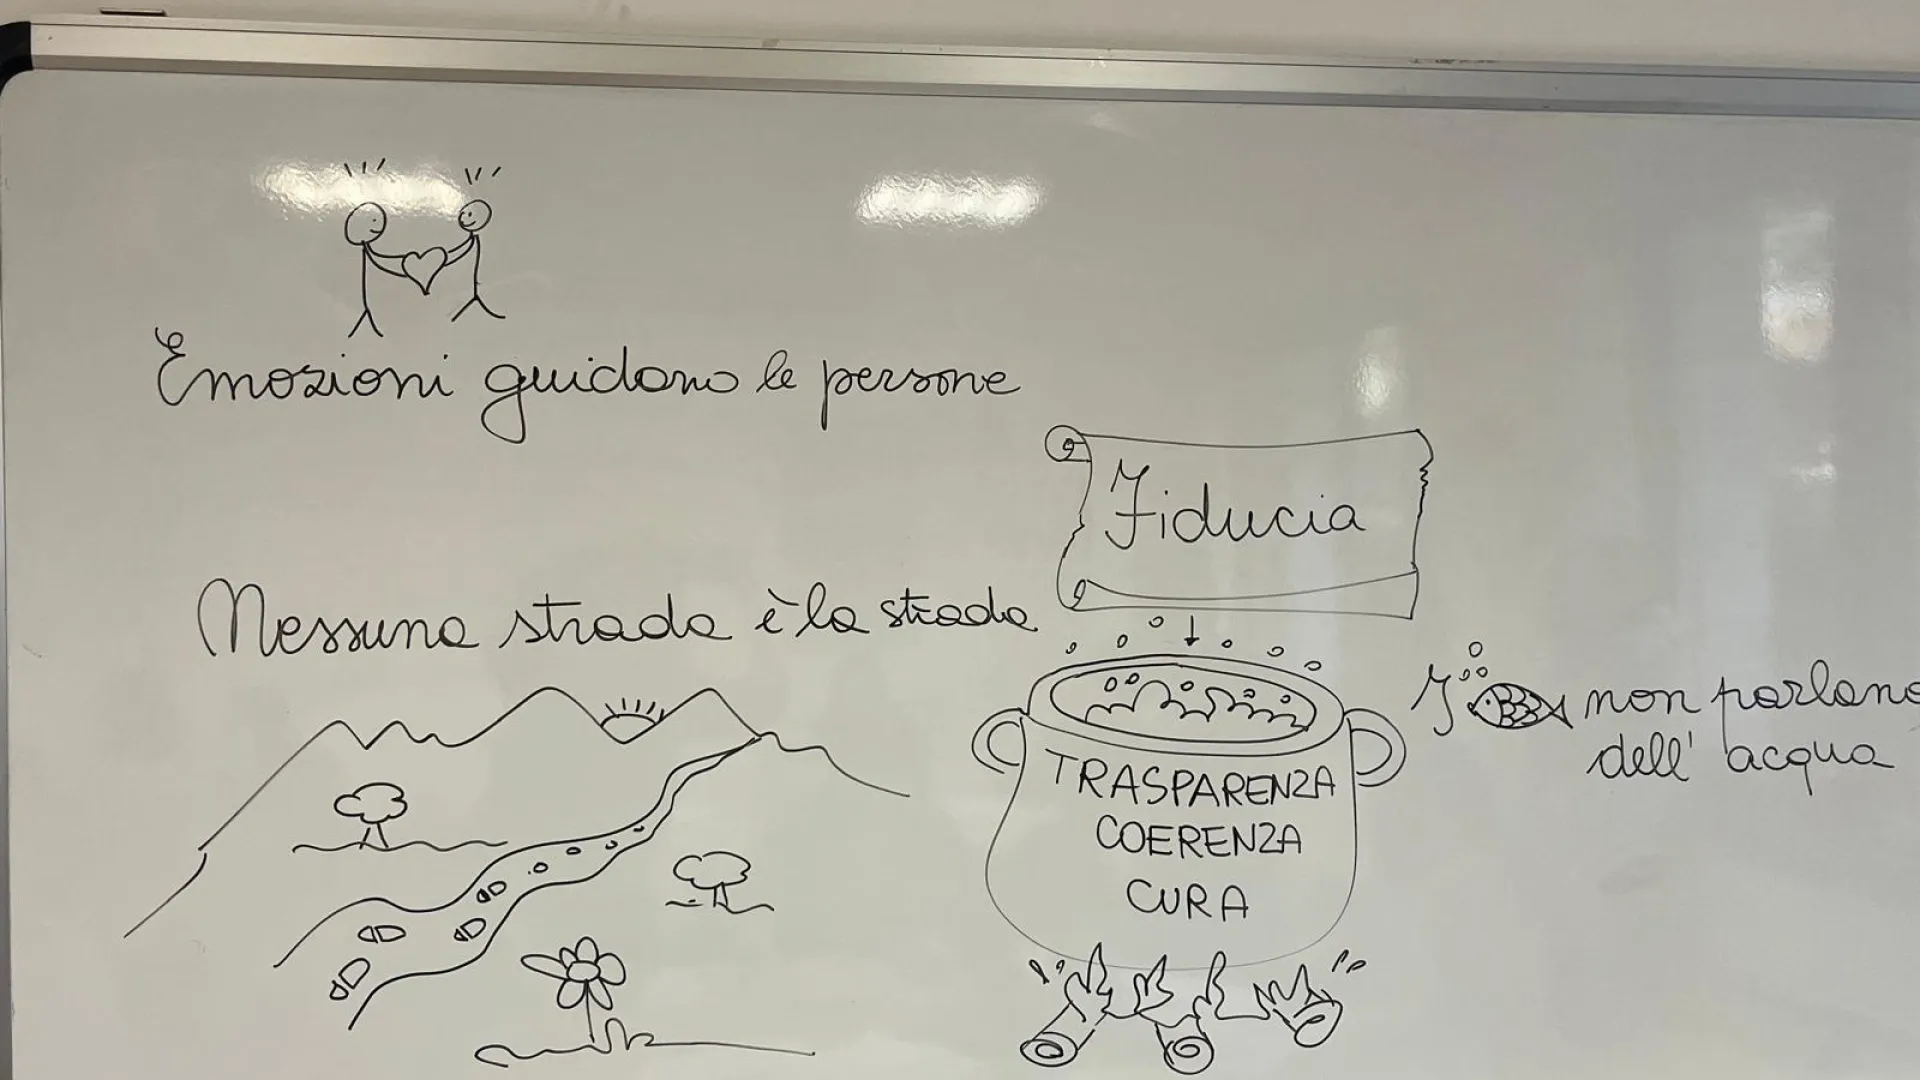 Emozioni guidano le persone
Fiducia
Nessuna strada è la strada
TRASPARENZA
COERENZA
CURA
I non parlano
dell' acqua